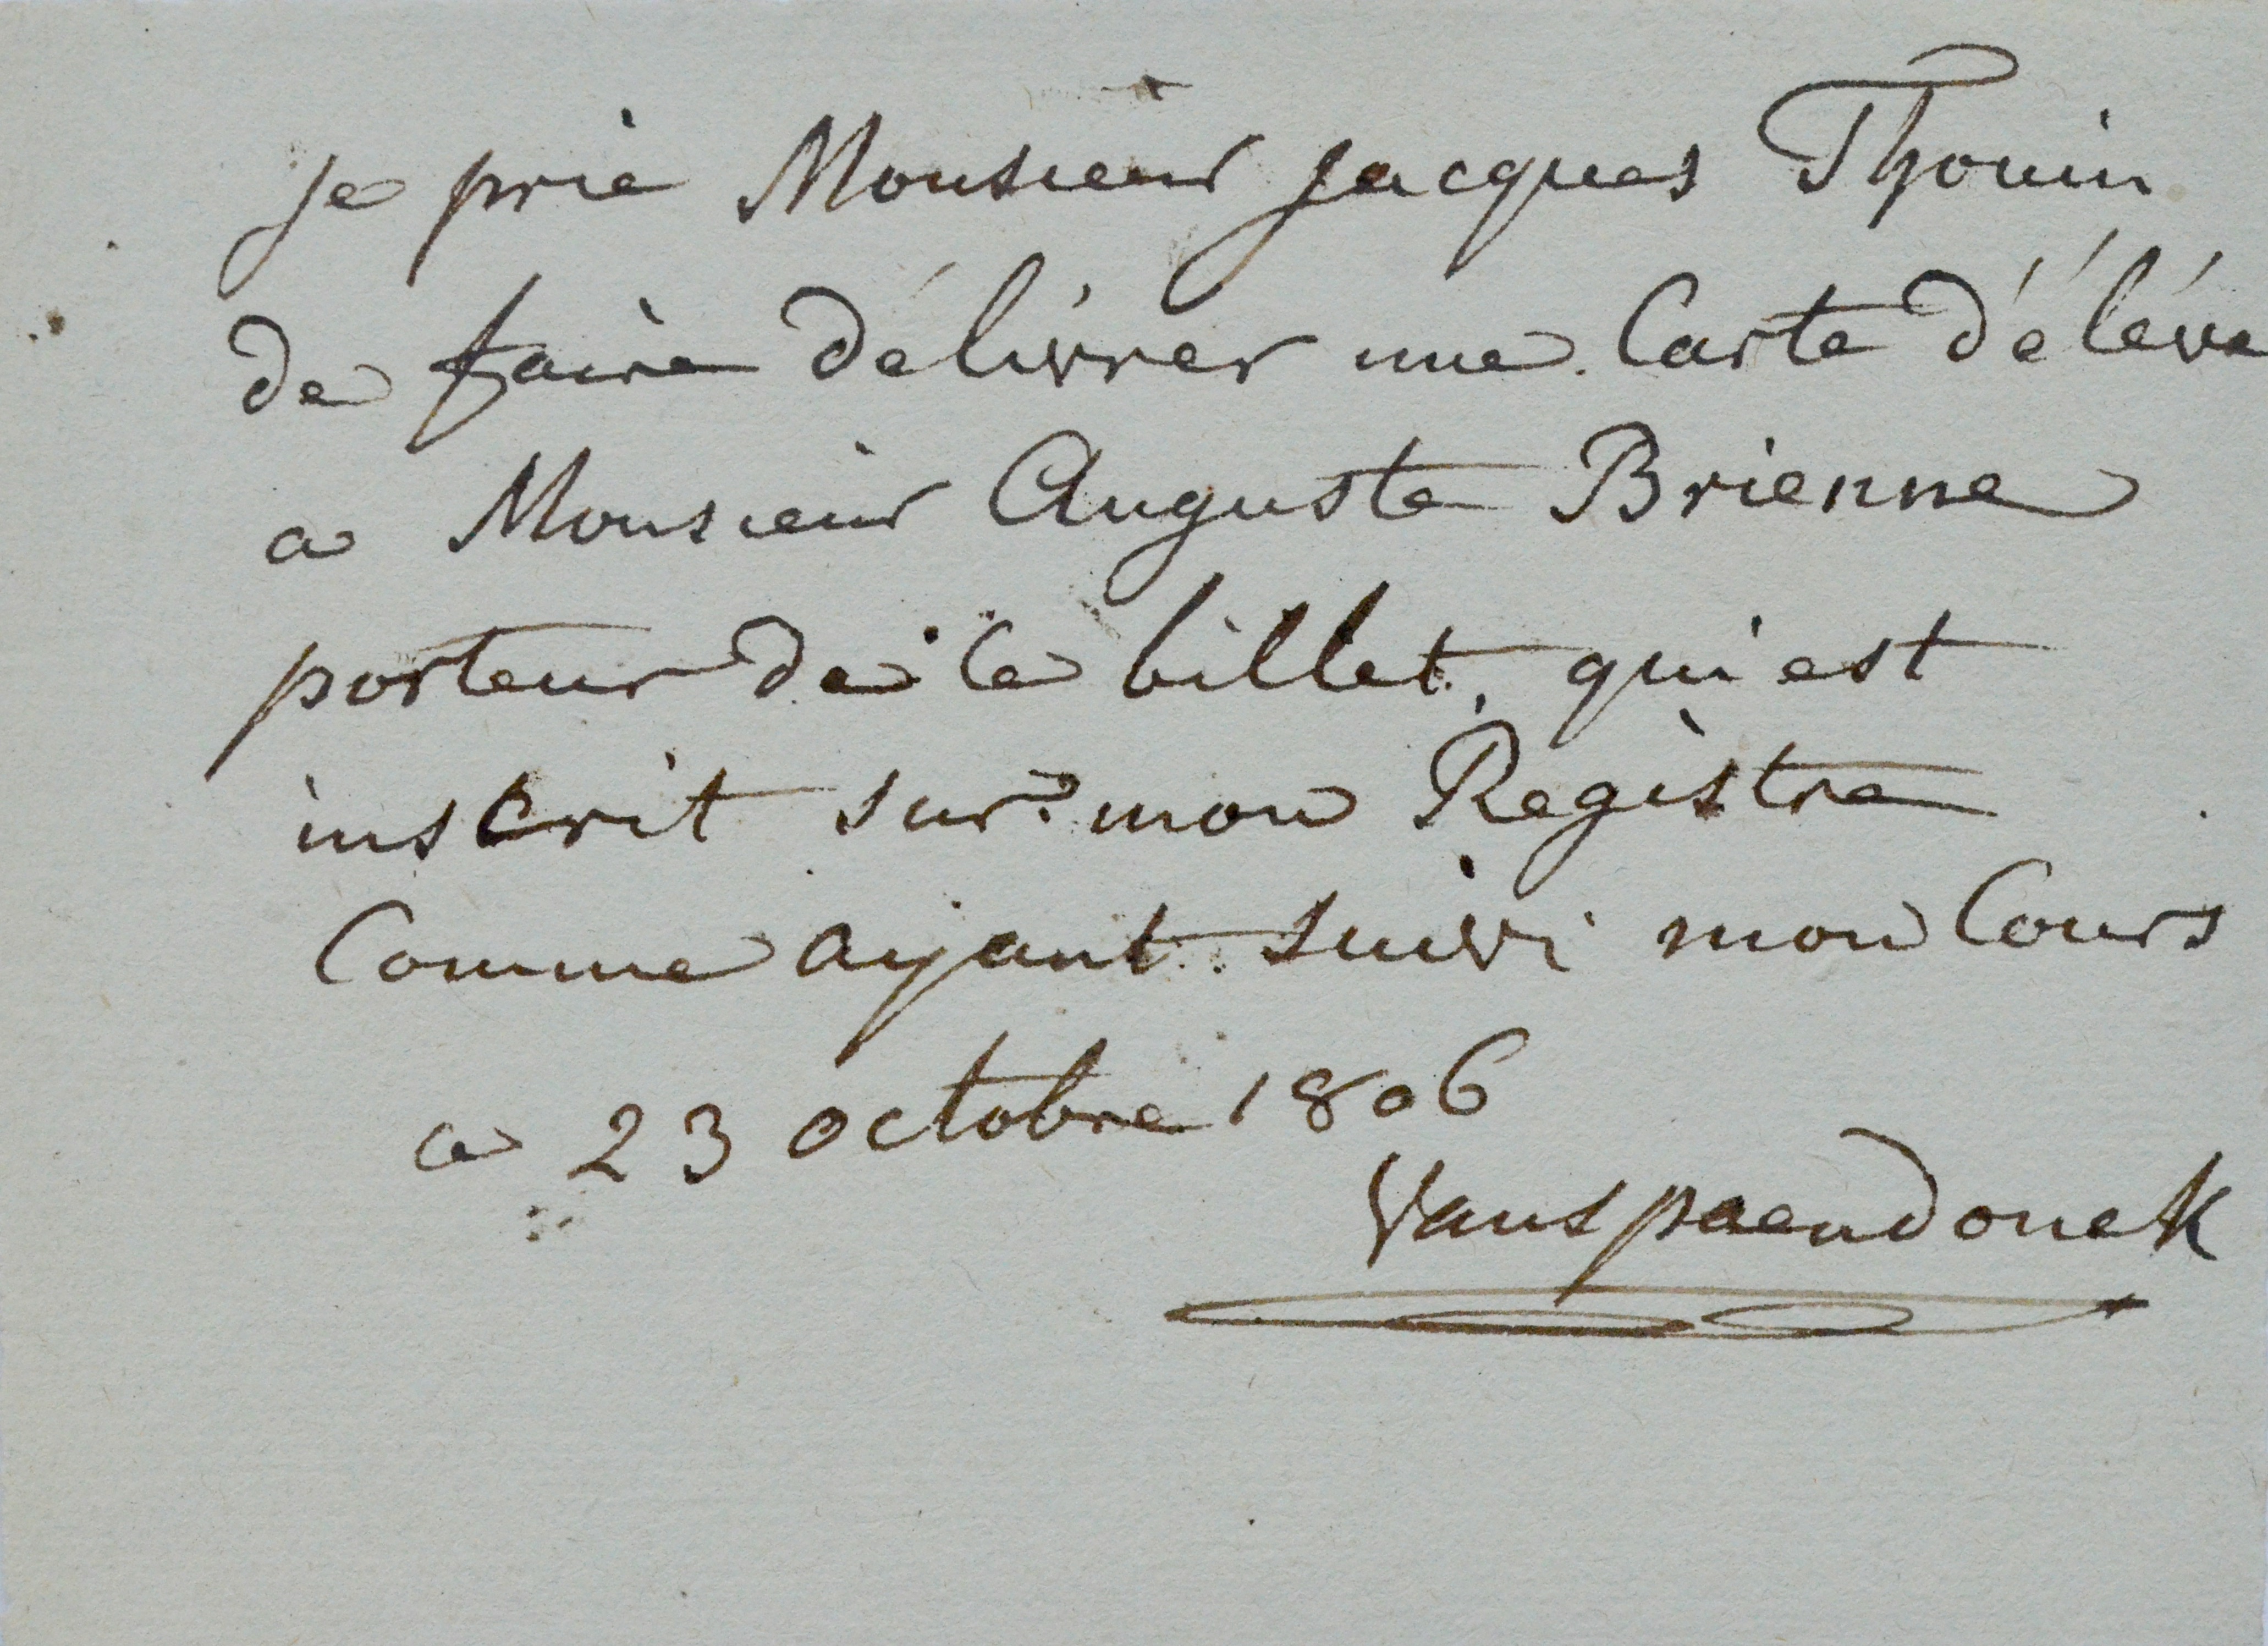 je prie Monsieur jacques Thouin
de faire délivrer une Carte d'élève
a Monsieur Auguste Brienne
porteur de ce billet, qui est
inscrit sur mon Registre
Comme ayant suivi mon Cours
ce 23 octobre 1806
Vanspaendonck